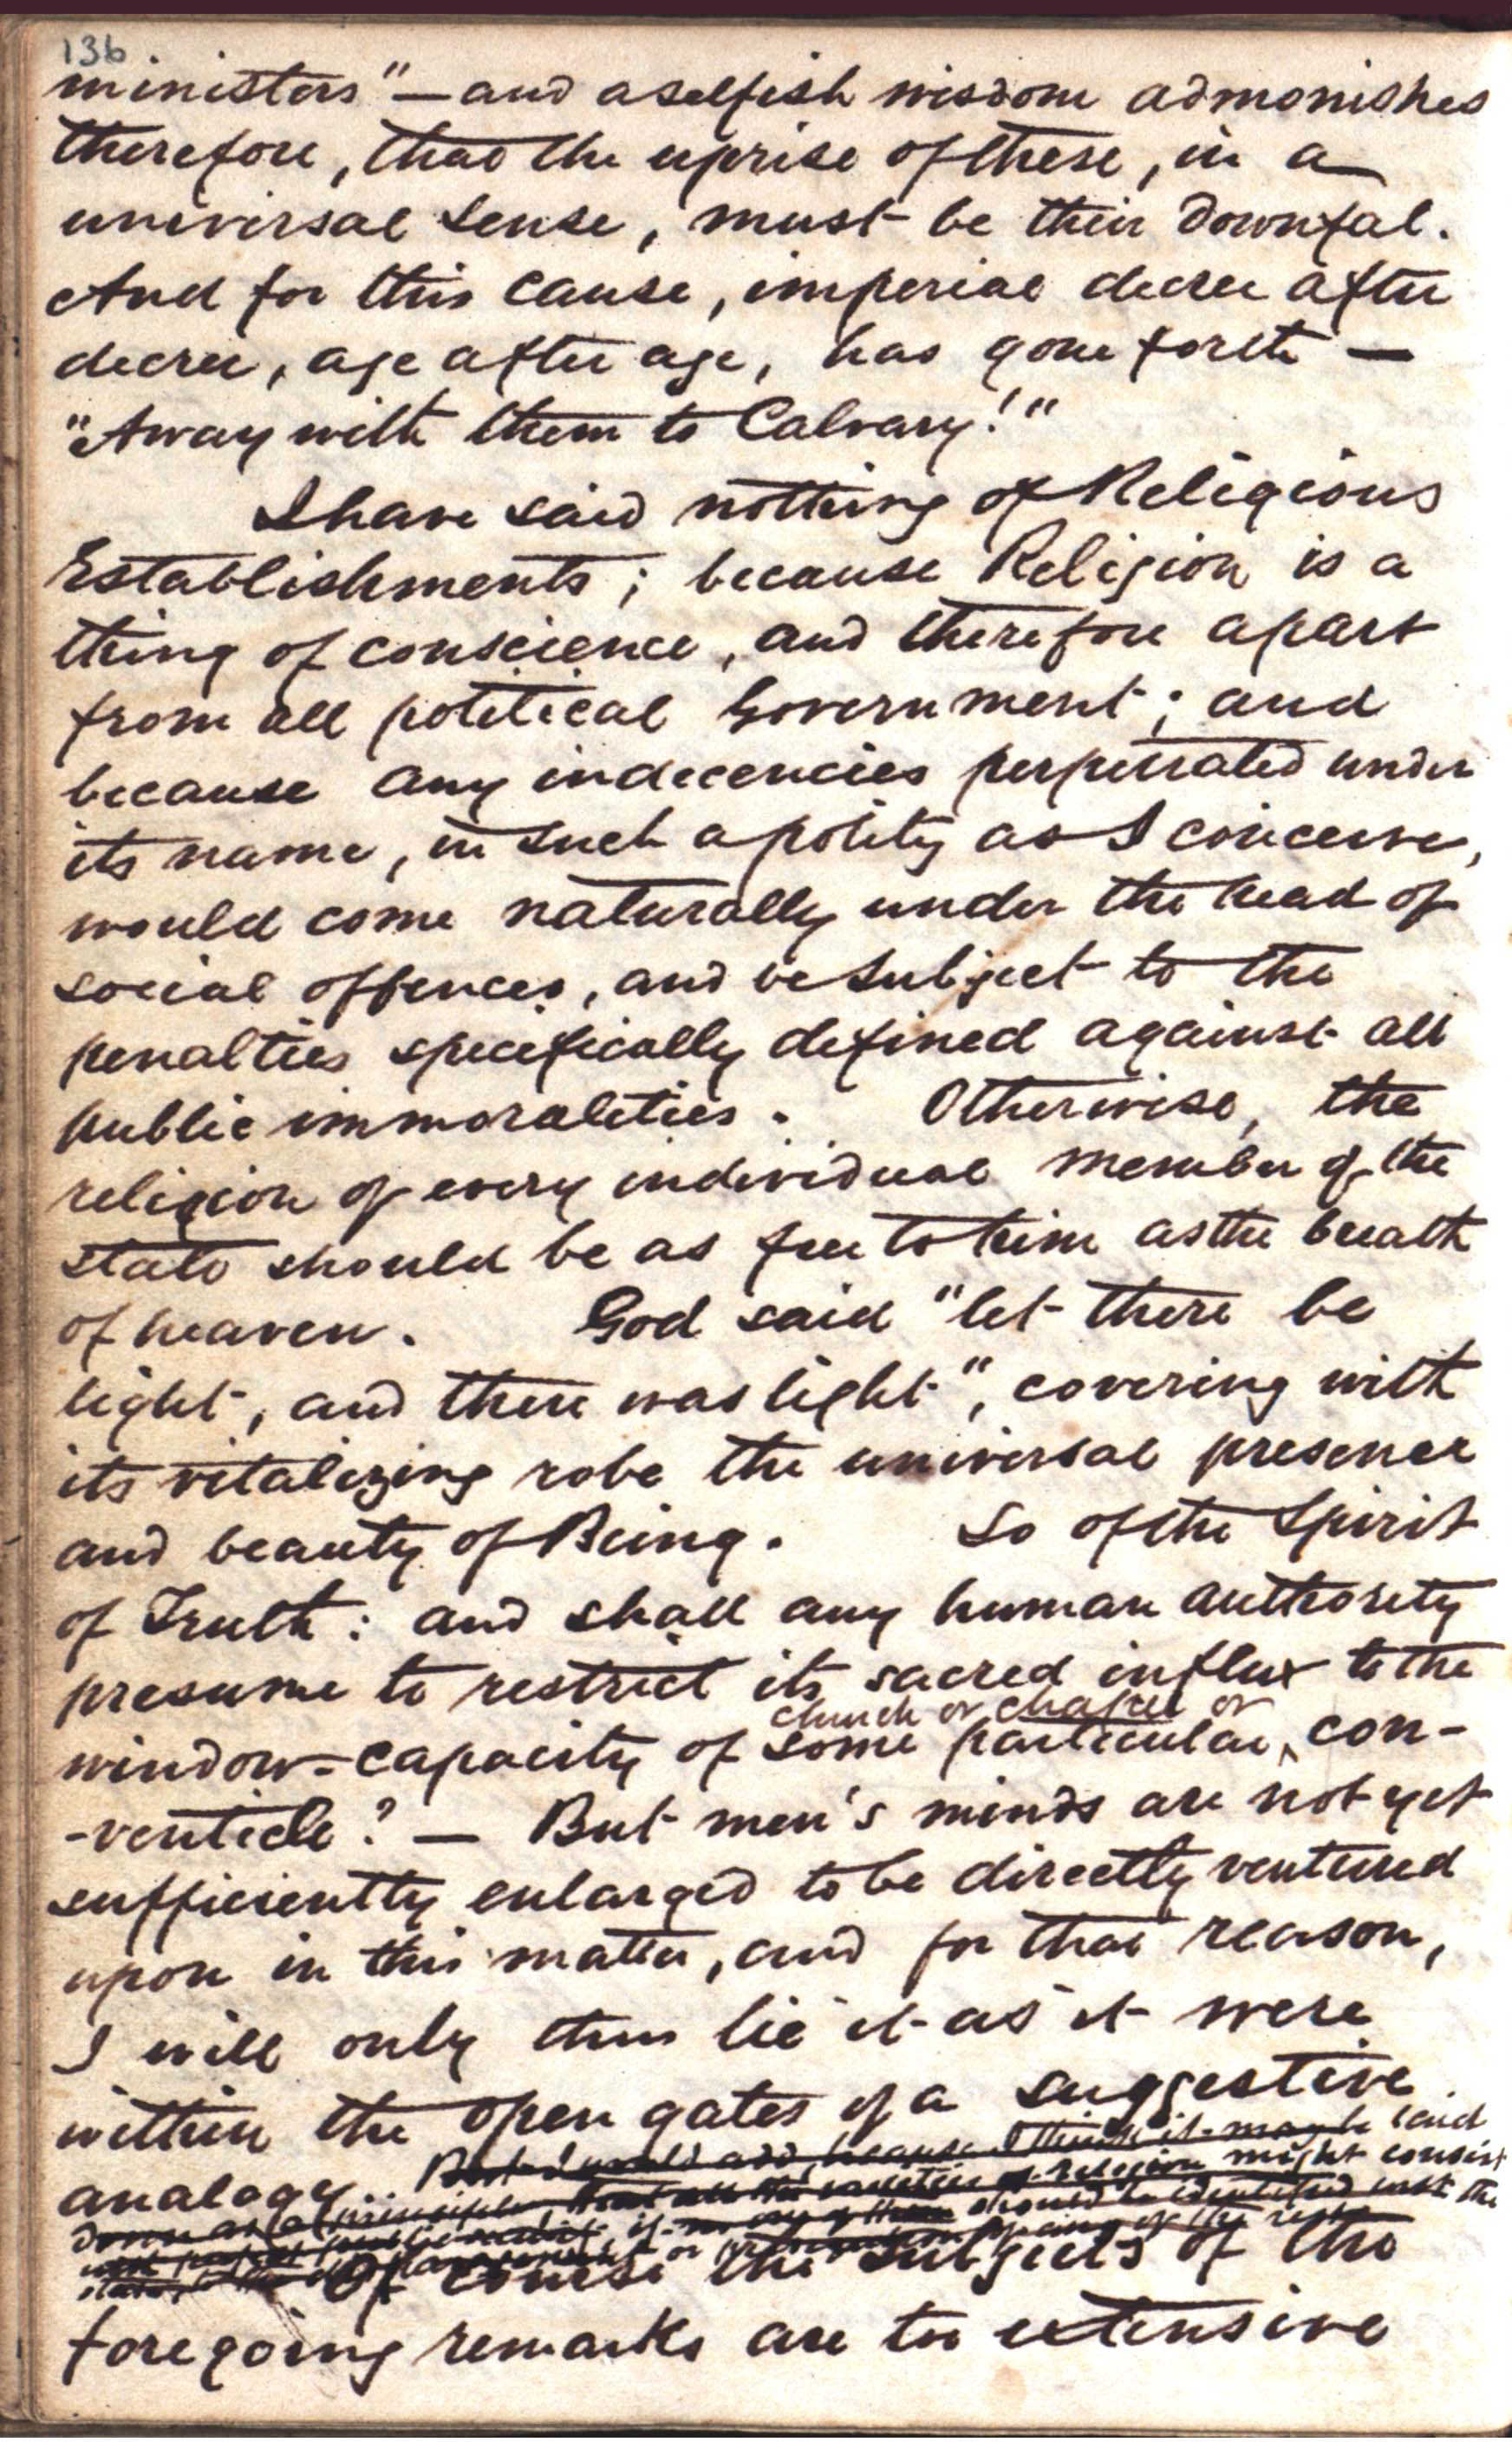 136
ministers" — and a selfish wisdom admonishes
therefore, that the uprise of these, in a
universal sense, must be their downfal.
And for this cause, imperial decree after
decree, age after age, has gone forth —
"Away with them to Calvary!"
I have said nothing of Religious
Establishments; because Religion is a
thing of conscience, and therefore apart
from all political Government; and
because any indecencies perpetrated under
its name, in such a polity as I conceive,
would come naturally under the head of
social offences, and be subject to the
penalties specifically defined against all
public immoralities. Otherwise, the
religion of every individual member of the
state should be as free to him as the breath
of heaven. God said "let there be
light, and there was light", covering with
its vitalizing robe the universal presence
and beauty of Being. So of the Spirit
of Truth: and shall any human authority
presume to restrict its sacred influx to the
church or chapel or
window-capacity of some particular con-
-venticle? — But men's minds are not yet
sufficiently enlarged to be directly ventured
upon in this matter, and for that reason,
I will only thus lie it as it were
within the open gates of a suggestive
analogy. But I would add, because I think it may be laid
down as a principle, that all the varieties of religion might consist
if any of them should be identified with the
or of the rest
Of course the subjects of the
foregoing remarks are too extensive